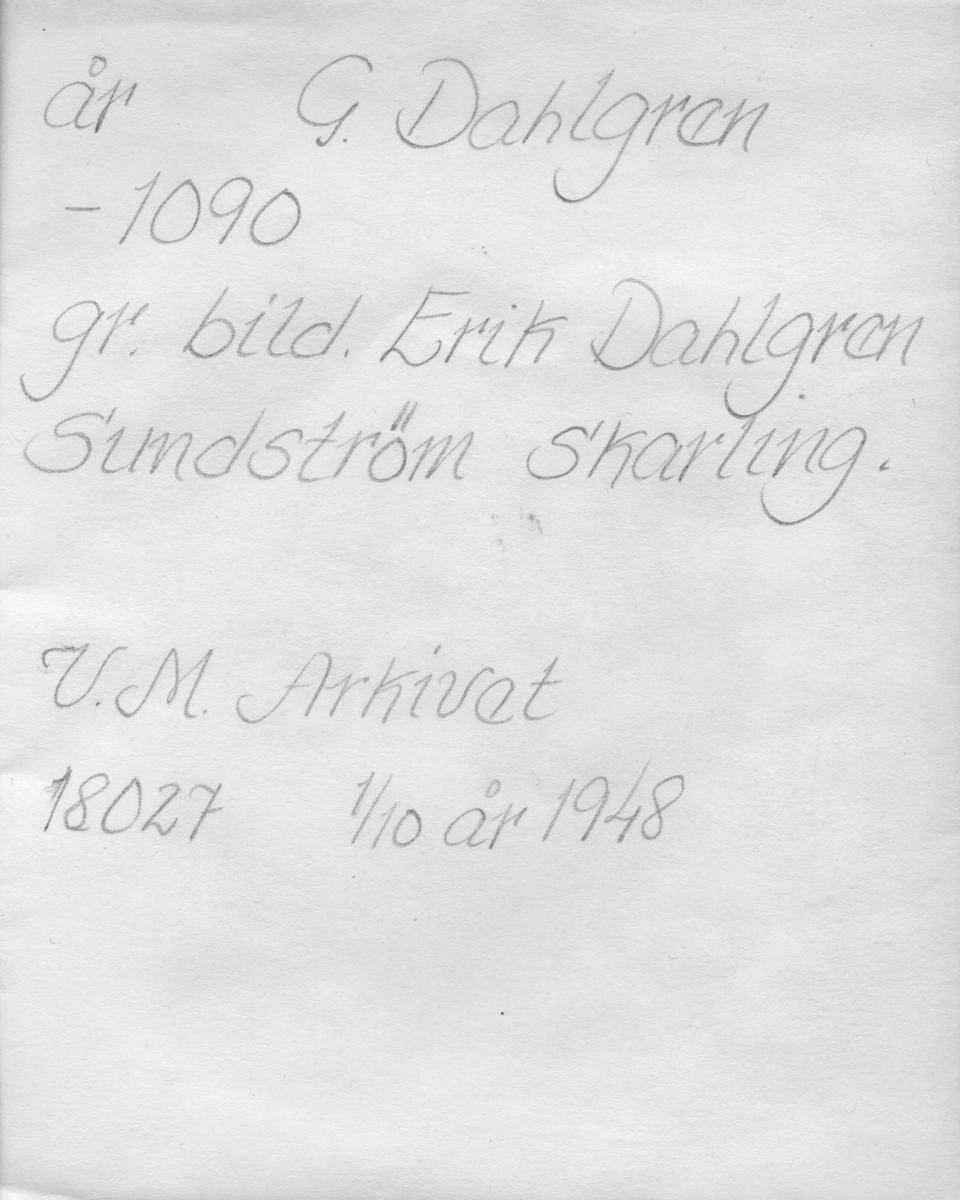 år G. Dahlgren
- 1090
gr. bild. Erik Dahlgren
Sundström Skarling.
V. M. Arkivet
18027 1/10 år 1948